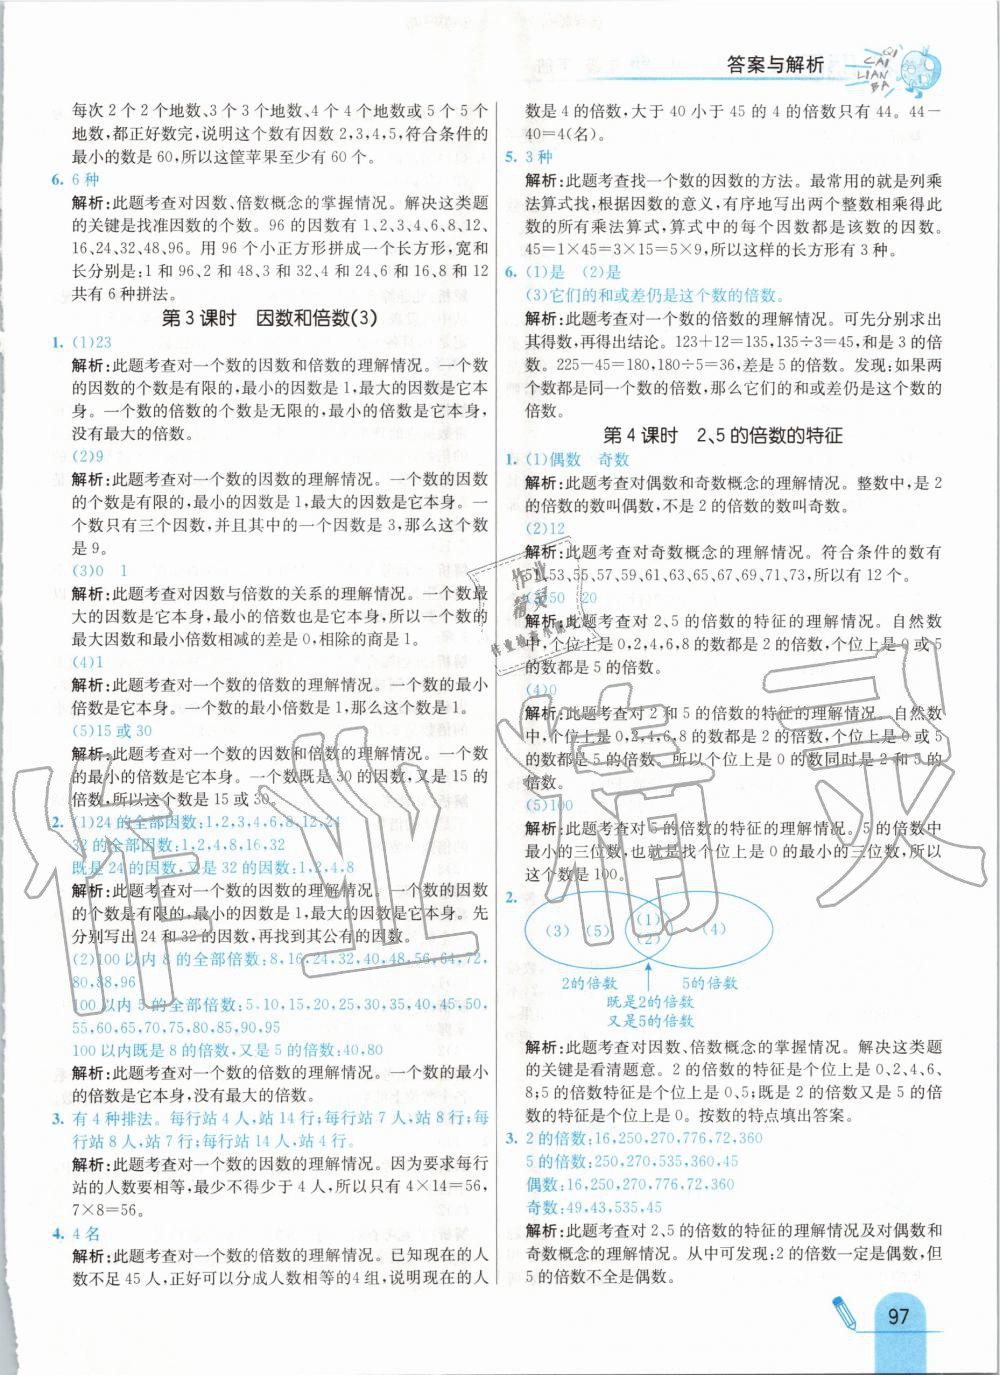 答案与解析
QI
CAI
LIAN
BA
每次2个2个地数、3个3个地数、4个4个地数或5个5个
地数,都正好数完,说明这个数有因数2,3,4,5,符合条件的
最小的数是60,所以这筐苹果至少有60个。
6. 6种
解析:此题考查对因数、倍数概念的掌握情况。解决这类题
的关键是找准因数的个数。96的因数有1,2,3,4,6,8,12,
16,24,32,48,96。用96个小正方形拼成一个长方形,宽和
长分别是:1和96、2和48、3和32、4和24、6和16、8和12
共有6种拼法。
第3课时 因数和倍数(3)
1. (1)23
解析:此题考查对一个数的因数和倍数的理解情况。一个数
的因数的个数是有限的,最小的因数是1,最大的因数是它本
身。一个数的倍数的个数是无限的,最小的倍数是它本身,
没有最大的倍数。
(2)9
解析:此题考查对一个数的因数的理解情况。一个数的因数
的个数是有限的,最小的因数是1,最大的因数是它本身。一
个数只有三个因数,并且其中的一个因数是3,那么这个数
是9。
(3)0 1
解析:此题考查对因数与倍数的关系的理解情况。一个数最
大的因数是它本身,最小的倍数也是它本身,所以一个数的
最大因数和最小倍数相减的差是0,相除的商是1。
(4)1
解析:此题考查对一个数的倍数的理解情况。一个数的最小
倍数是它本身。一个数的最小因数是1。
(5)15或30
解析:此题考查对一个数的因数和倍数的理解情况。一个数
的最小的倍数是它本身。一个数既是30的因数,又是15的
倍数,所以这个数是15或30。
2. (1)24的全部因数:1,2,3,4,6,8,12,24
32的全部因数:1,2,4,8,16,32
既是24的因数,又是32的因数:1,2,4,8
解析:此题考查对一个数的因数的理解情况。一个数的因数
的个数是有限的,最小的因数是1,最大的因数是它本身。先
分别写出24和32的因数,再找到其公有的因数。
(2)100以内8的全部倍数:8,16,24,32,40,48,56,64,72,
80,88,96
100以内5的全部倍数:5,10,15,20,25,30,35,40,45,50,
55,60,65,70,75,80,85,90,95
100以内既是8的倍数,又是5的倍数:40,80
解析:此题考查对一个数的倍数的理解情况。一个数的最小
的倍数是它本身,没有最大的倍数。
3. 有4种排法。每行站4人,站14行;每行站7人,站8行;每
行站8人,站7行;每行站14人,站4行。
解析:此题考查对一个数的因数的理解情况。因为要求每行
站的人数要相等,最少不得少于4人,所以只有4×14=56,
7×8=56。
4. 4名
解析:此题考查对一个数的倍数的理解情况。已知现在的人
数不足45人,正好可以分成人数相等的4组,说明现在的人
数是4的倍数,大于40小于45的4的倍数只有44。44－
40=4(名)。
5. 3种
解析:此题考查找一个数的因数的方法。最常用的就是列乘
法算式找,根据因数的意义,有序地写出两个整数相乘得此
数的所有乘法算式,算式中的每个因数都是该数的因数。
45=1×45=3×15=5×9,所以这样的长方形有3种。
6. (1)是 (2)是
(3)它们的和或差仍是这个数的倍数。
解析:此题考查对一个数的倍数的理解情况。可先分别求出
其得数,再得出结论。123+12=135,135÷3=45,和是3的倍
数。225-45=180,180÷5=36,差是5的倍数。发现:如果两
个数都是同一个数的倍数,那么它们的和或差仍是这个数的
倍数。
第4课时 2、5的倍数的特征
1. (1)偶数 奇数
解析:此题考查对偶数和奇数概念的理解情况。整数中,是2
的倍数的数叫偶数,不是2的倍数的数叫奇数。
(2)12
解析:此题考查对奇数概念的理解情况。符合条件的数有
51,53,55,57,59,61,63,65,67,69,71,73,所以有12个。
(3)50 20
解析:此题考查对2、5的倍数的特征的理解情况。自然数
中,个位上是0,2,4,6,8的数都是2的倍数,个位上是0或5
的数都是5的倍数。
(4)0
解析:此题考查对2和5的倍数的特征的理解情况。自然数
中,个位上是0,2,4,6,8的数都是2的倍数,个位上是0或5
的数都是5的倍数。所以个位上是0的数同时是2和5的
倍数。
(5)100
解析:此题考查对5的倍数的特征的理解情况。5的倍数中
最小的三位数,也就是找个位上是0的最小的三位数,所以
这个数是100。
2.
(3) (5) (1) (2) (4)
2的倍数 5的倍数
既是2的倍数
又是5的倍数
解析:此题考查对因数、倍数概念的掌握情况。解决这类题
的关键是看清题意。2的倍数特征是个位上是0、2、4、6、
8;5的倍数特征是个位上是0、5;既是2的倍数又是5的倍
数的特征是个位上是0。按数的特点填出答案。
3. 2的倍数:16,250,270,776,72,360
5的倍数:250,270,535,360,45
偶数:16,250,270,776,72,360
奇数:49,43,535,45
解析:此题考查对2、5的倍数的特征的理解情况及对偶数和
奇数概念的理解情况。从中可发现:2的倍数一定是偶数,但
5的倍数不全是偶数。
97
作业精灵
作业
精灵